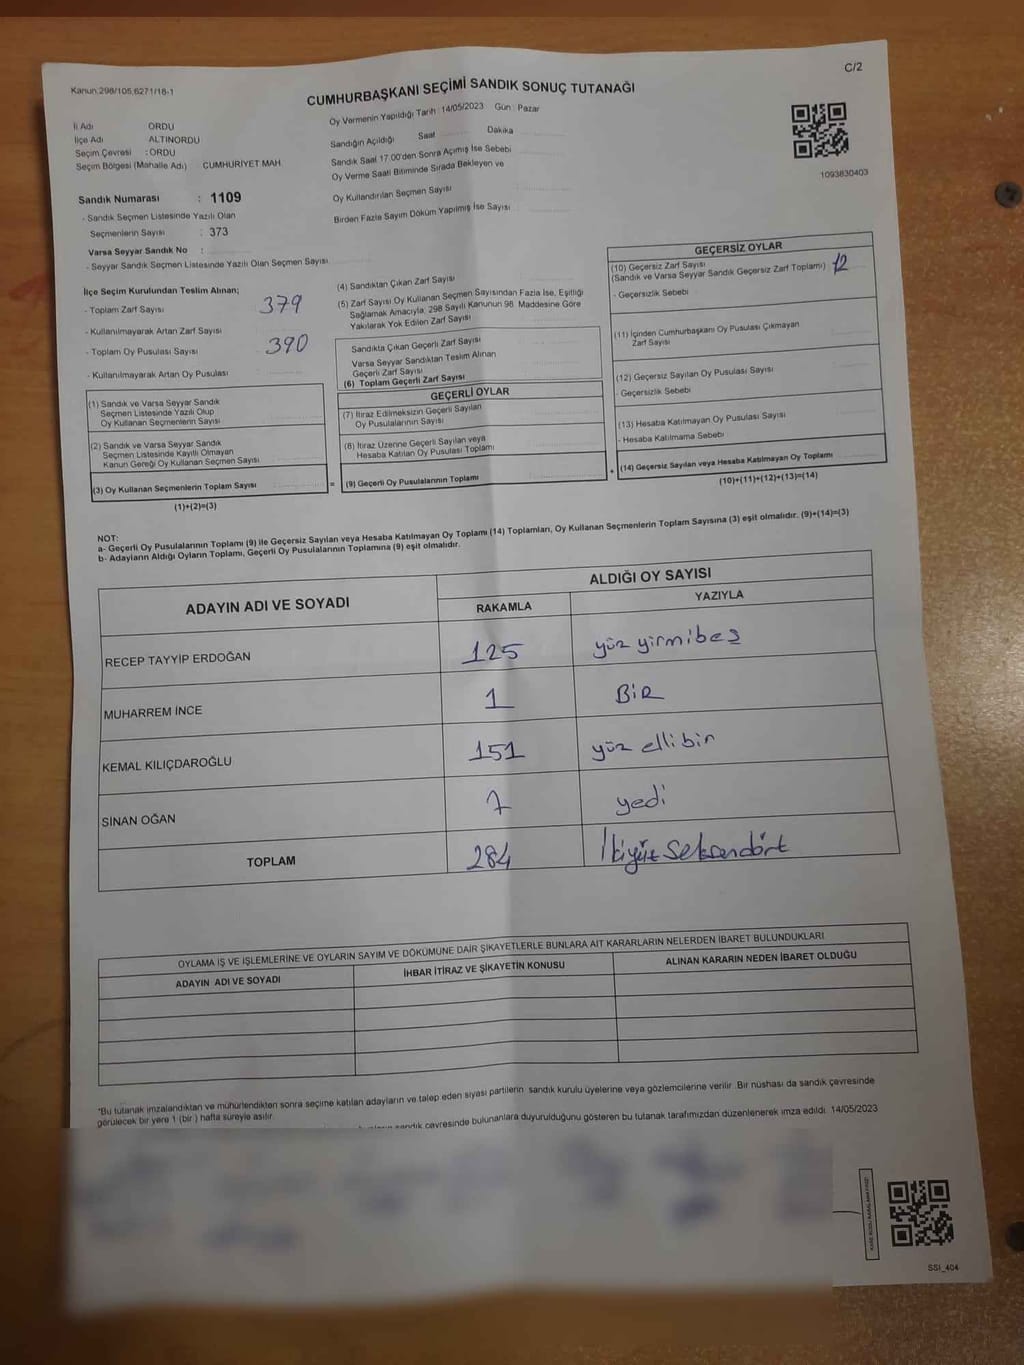 Kanun,298/105,6271/18-1
C/2
CUMHURBAŞKANI SEÇİMİ SANDIK SONUÇ TUTANAĞI
Oy Vermenin Yapıldığı Tarih : 14/05/2023 Gün : Pazar
İl Adı ORDU
İlçe Adı ALTINORDU
Seçim Çevresi : ORDU
Seçim Bölgesi (Mahalle Adı) CUMHURİYET MAH
Sandık Numarası : 1109
- Sandık Seçmen Listesinde Yazılı Olan
Seçmenlerin Sayısı : 373
Varsa Seyyar Sandık No :
- Seyyar Sandık Seçmen Listesinde Yazılı Olan Seçmen Sayısı
Sandığın Açıldığı Saat Dakika
Sandık Saat 17.00'den Sonra Açımış İse Sebebi
Oy Verme Saati Bitiminde Sırada Bekleyen ve
Oy Kullandırılan Seçmen Sayısı
Birden Fazla Sayım Döküm Yapılmış İse Sayısı
1093830403
İlçe Seçim Kurulundan Teslim Alınan;
- Toplam Zarf Sayısı 379
- Kullanılmayarak Artan Zarf Sayısı
- Toplam Oy Pusulası Sayısı 390
- Kullanılmayarak Artan Oy Pusulası
(1) Sandık ve Varsa Seyyar Sandık
Seçmen Listesinde Yazılı Olup
Oy Kullanan Seçmenlerin Sayısı
(2) Sandık ve Varsa Seyyar Sandık
Seçmen Listesinde Kayıtlı Olmayan
Kanun Gereği Oy Kullanan Seçmen Sayısı
(3) Oy Kullanan Seçmenlerin Toplam Sayısı
(1)+(2)=(3)
=
(4) Sandıktan Çıkan Zarf Sayısı
(5) Zarf Sayısı Oy Kullanan Seçmen Sayısından Fazla İse, Eşitliği
Sağlamak Amacıyla; 298 Sayılı Kanunun 98. Maddesine Göre
Yakılarak Yok Edilen Zarf Sayısı
Sandıkta Çıkan Geçerli Zarf Sayısı
Varsa Seyyar Sandıktan Teslim Alınan
Geçerli Zarf Sayısı
(6) Toplam Geçerli Zarf Sayısı
GEÇERLİ OYLAR
(7) İtiraz Edilmeksizin Geçerli Sayılan
Oy Pusulalarının Sayısı
(8) İtiraz Üzerine Geçerli Sayılan veya
Hesaba Katılan Oy Pusulası Toplamı
(9) Geçerli Oy Pusulalarının Toplamı
+
GEÇERSİZ OYLAR
(10) Geçersiz Zarf Sayısı
(Sandık ve Varsa Seyyar Sandık Geçersiz Zarf Toplamı) 12
- Geçersizlik Sebebi
(11) İçinden Cumhurbaşkanı Oy Pusulası Çıkmayan
Zarf Sayısı
(12) Geçersiz Sayılan Oy Pusulası Sayısı
- Geçersizlik Sebebi
(13) Hesaba Katılmayan Oy Pusulası Sayısı
- Hesaba Katılmama Sebebi
(14) Geçersiz Sayılan veya Hesaba Katılmayan Oy Toplamı
(10)+(11)+(12)+(13)=(14)
NOT:
a- Geçerli Oy Pusulalarının Toplamı (9) ile Geçersiz Sayılan veya Hesaba Katılmayan Oy Toplamı (14) Toplamları, Oy Kullanan Seçmenlerin Toplam Sayısına (3) eşit olmalıdır. (9)+(14)=(3)
b- Adayların Aldığı Oyların Toplamı, Geçerli Oy Pusulalarının Toplamına (9) eşit olmalıdır.
ADAYIN ADI VE SOYADI ALDIĞI OY SAYISI
RAKAMLA YAZIYLA
RECEP TAYYİP ERDOĞAN 125 yüz yirmibeş
MUHARREM İNCE 1 BİR
KEMAL KILIÇDAROĞLU 151 yüz ellibir
SİNAN OĞAN 7 yedi
TOPLAM 284 İkiyüz seksendört
OYLAMA İŞ VE İŞLEMLERİNE VE OYLARIN SAYIM VE DÖKÜMÜNE DAİR ŞİKAYETLERLE BUNLARA AİT KARARLARIN NELERDEN İBARET BULUNDUKLARI
ADAYIN ADI VE SOYADI İHBAR İTİRAZ VE ŞİKAYETİN KONUSU ALINAN KARARIN NEDEN İBARET OLDUĞU
*Bu tutanak imzalandıktan ve mühürlendikten sonra seçime katılan adayların ve talep eden siyasi partilerin sandık kurulu üyelerine veya gözlemcilerine verilir. Bir nüshası da sandık çevresinde
görülecek bir yere 1 (bir) hafta süreyle asılır.
sandık çevresinde bulunanlara duyurulduğunu gösteren bu tutanak tarafımızdan düzenlenerek imza edildi. 14/05/2023
SSI_404